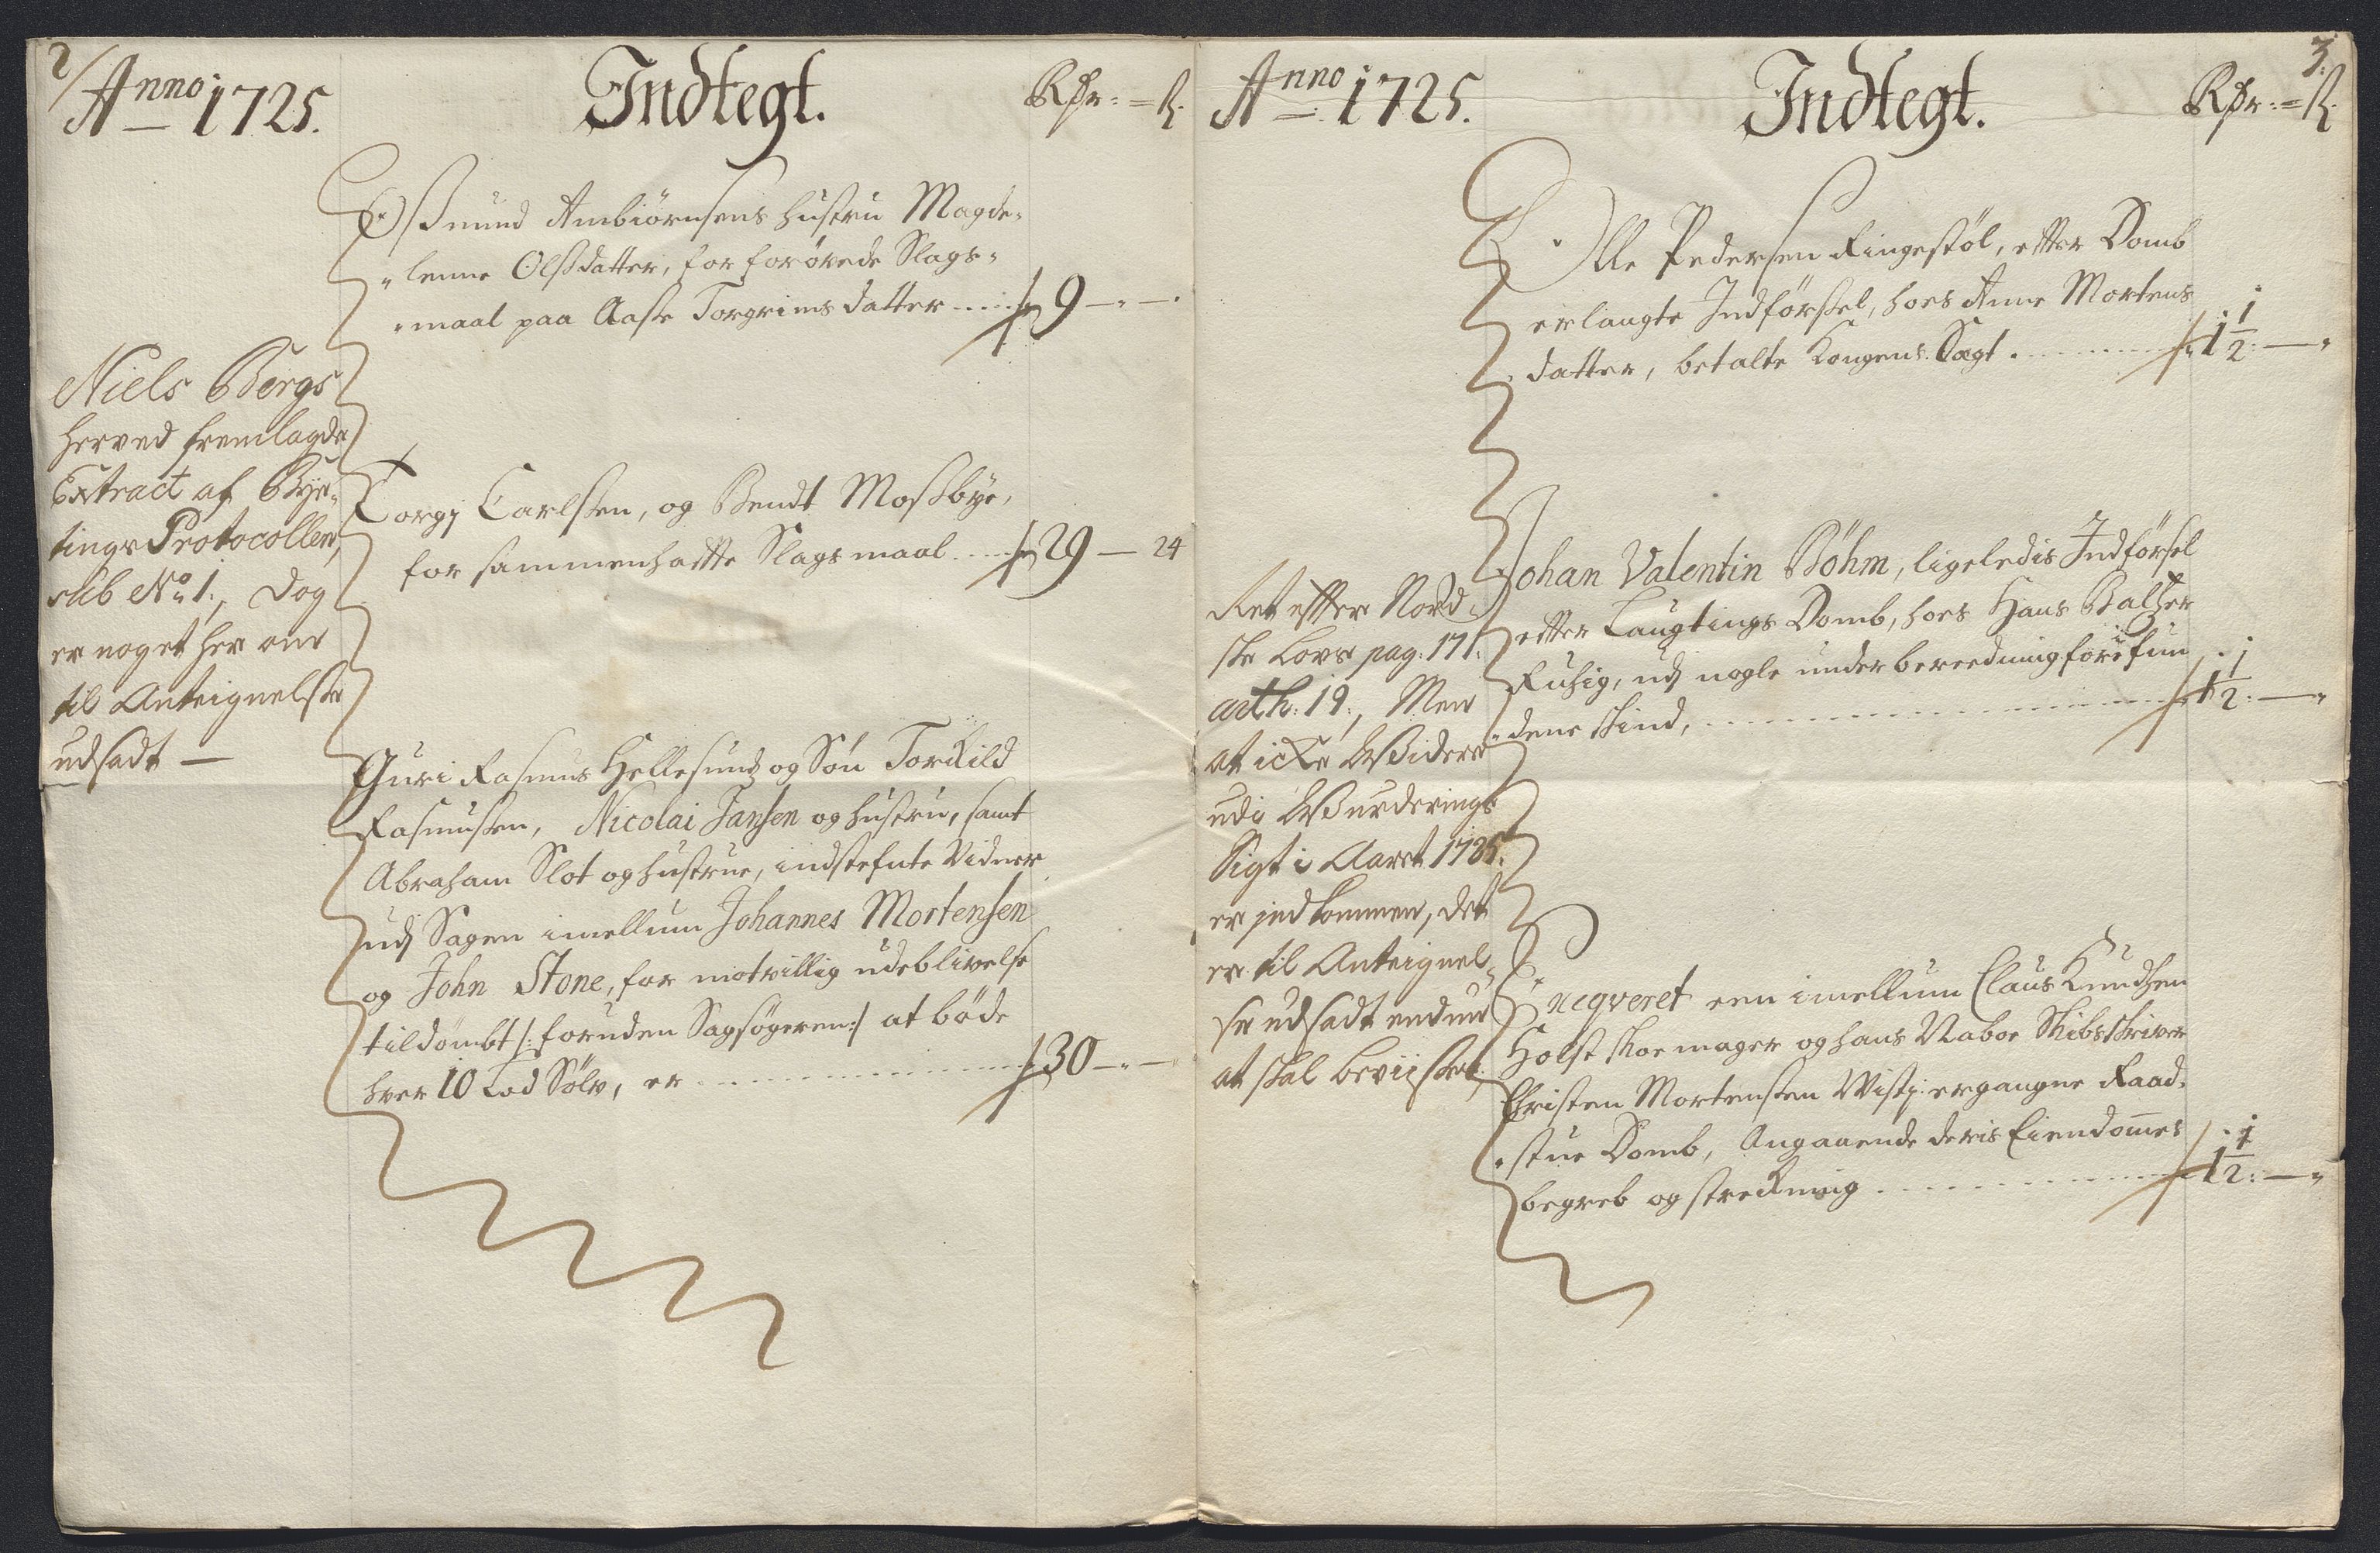 2/
Anno 1725.
Indtegt.
Rdr:=ß.
Osmund Ambiørnsens hustru Magde-
lenne Olsdatter, for forøvede Slags-
maal paa Aasse Torgrims datter 9 — " —
Niels Bergs
herved fremlagde
Extract af Bye-
tings Protocollen,
sub No 1., dog
er noget her om
til Anteignelse
udsadt —
Torgj Carlsen, og Bendt Mosbye,
for sammenhafte Slagsmaal 29 — 24
Guri Rasmus Hellesund og Søn Torkild
Rasmussen, Nicolai Jansen og hustru, samt
Abraham Slot og hustrue, indstefnte Vidner
udj Sagen imellum Johannes Mortensen
og John Stone, for motvillig udeblivelse
tildømbt /: foruden Sagsøgeren :/ at bøde
hver 10 Lod Sølv, er 30 — " —
3.
Anno 1725.
Indtegt.
Rdr:=ß.
Olle Pedersen Ringestøl, efter Domb
erlangte Indførsel, hoes Anne Mortens
datter, betalte Kongens Sagt 1 1/2: — "
Johan Valentin Böhm, ligeledis Indførsel
efter Laugtings Domb, hoes Hans Baltzer
Fusig, udj nogle underberedning forefun
dene skind, 1 1/2: — "
Ret efter Nord
ske Lovs pag: 171.
arth: 19., Men
at icke Widere
udi Wurderings
Sigt i Aaret 1725.
er jndkommen, det
er til Anteignel-
se udsadt endnu
at skal beviisses
Enqveret een imellum Claus Knudsen
Holst skoemager og hans Naboe Skibsskriver
Christen Mortensen Wistj: ergangne Raad-
stue Domb, Angaaende deris Eiendommes
begreb og streckning 1 1/2: — "